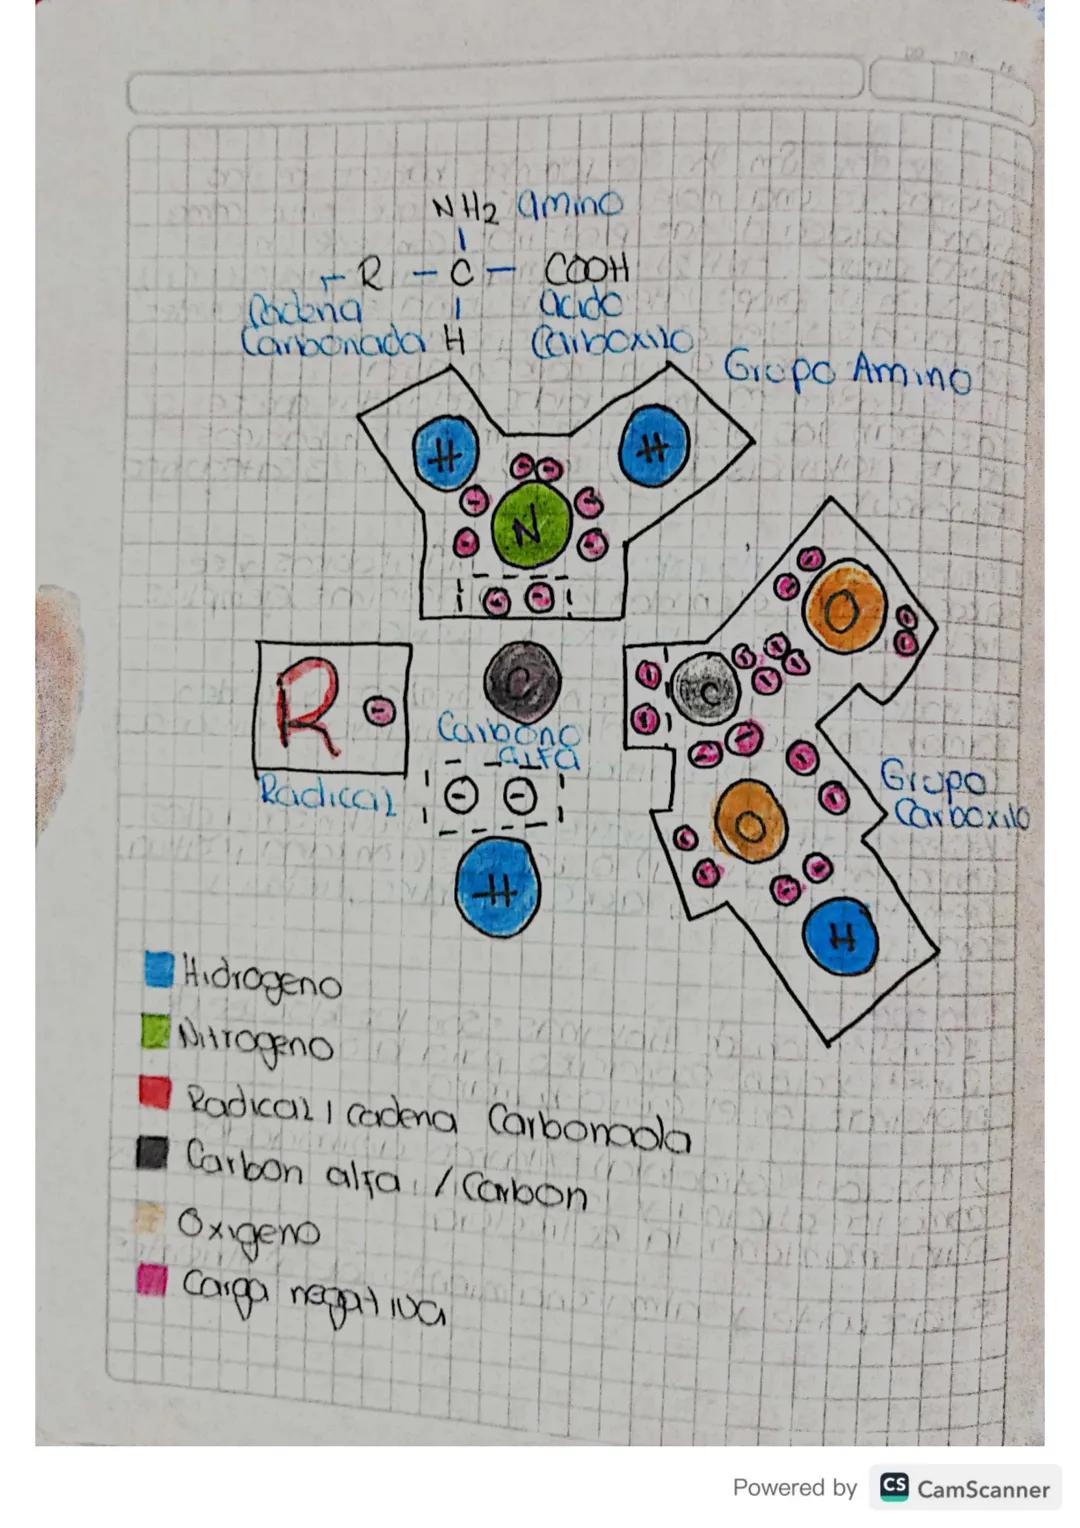 NH2 amino
- R - C - COOH
Cadena | acido
Carbonada H Carboxilo
Grupo Amino
H H
N
O
R C C
Carbono
alfa
Radical
Grupo
Carboxilo
O
H
H
Hidrogeno
Nitrogeno
Radical / cadena Carbonada
Carbon alfa / Carbon
Oxigeno
Carga negativa
Powered by CS CamScanner